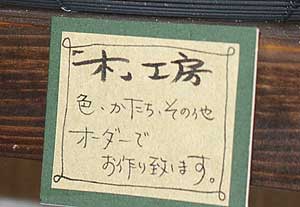 木工房
色、かたち、その他
オーダーで
お作り致します。